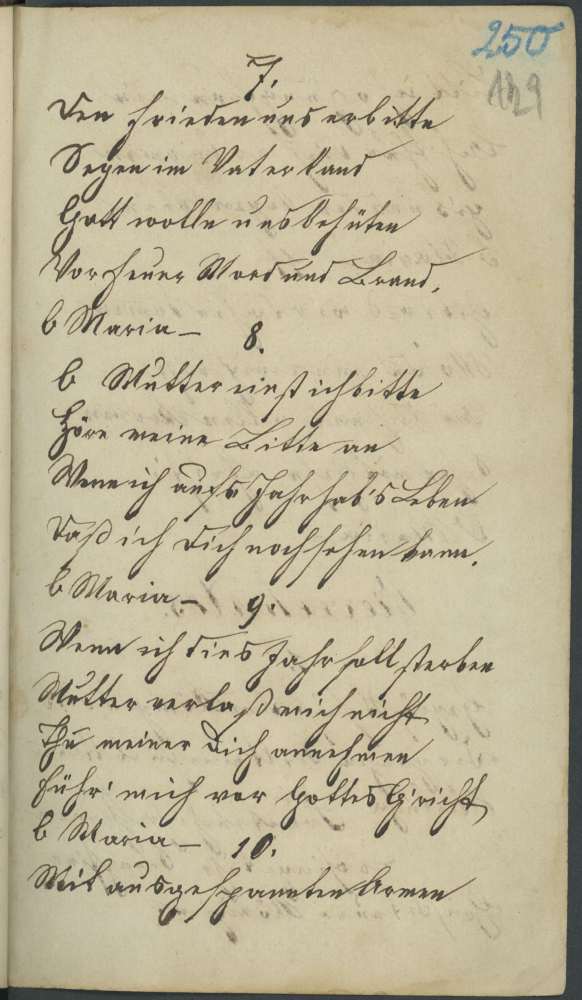 250
129
7.
Den Frieden uns erbitte
Segen im Vaterland
Gott wolle uns behüten
Vor Feuer Mord und Brand.
O Maria –
8.
O Mutter einst ich bitte
Höre meine Bitte an
Wenn ich aufs Jahr hab's Leben
Daß ich Dich noch sehen kann.
O Maria –
9.
Wenn ich dies Jahr soll sterben
Mutter verlaß mich nicht
Thu meiner Dich annehmen
Führ' mich vor Gottes G'richt
O Maria –
10.
Mit ausgespannten Armen